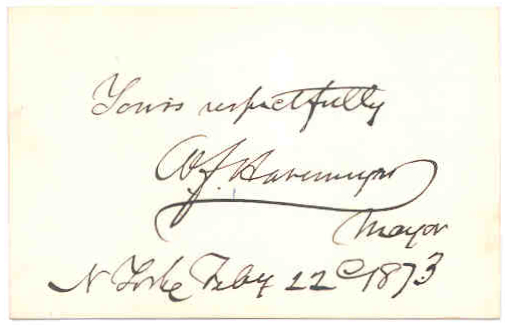 Yours respectfully
W.F. Havemeyer
Mayor
N York Feby 22d 1873